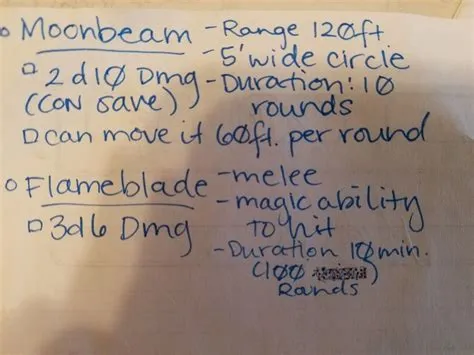 Moonbeam - Range 120ft
- 5' wide circle
2d10 Dmg - Duration: 10
(CON save) rounds
can move it 60ft. per round
Flameblade - melee
- magic ability
3d6 Dmg to hit
- Duration 10 min.
(100
Rounds)